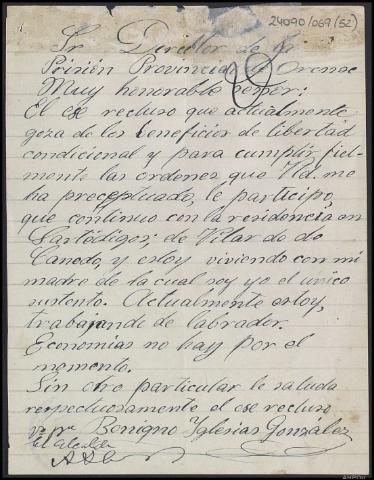 24090/069 (52)
Sr Director de la
Prisión Provincial de Orense
Muy honorable señor:
El ese recluso que actualmente
goza de los beneficios de libertad
condicional y para cumplir fiel-
mente las ordenes que Ud. me
ha preceptuado, le participo,
que continuo con la residencia en
de Vilar de do
Canedo, y estoy viviendo con mi
madre de la cual soy yo el unico
sustento. Actualmente estoy,
trabajando de labrador.
Economias no hay por el
momento.
Sin otro particular le saluda
respectuosamente el ese recluso
Benigno Iglesias González
El alcalde